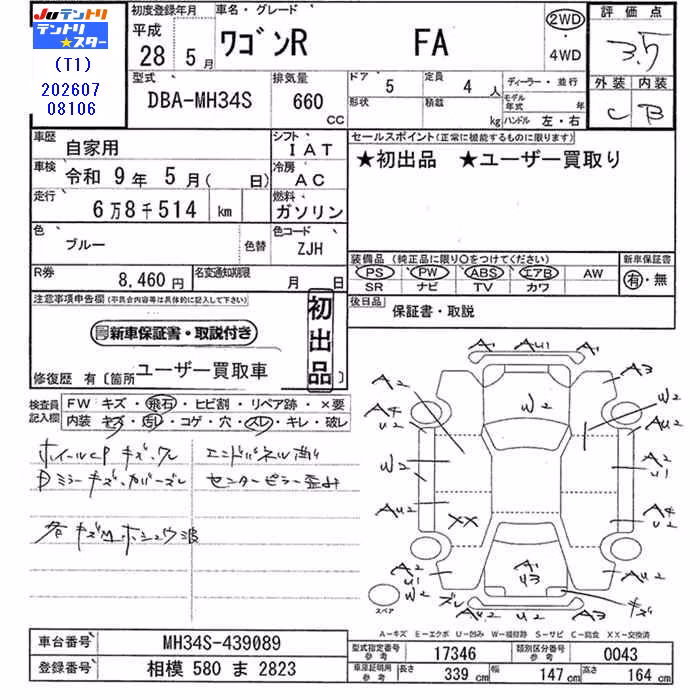 Juテントリ
テントリ★スター
(T1)
202607
08106
初度登録年月
平成
28 5月
車名・グレード
ワゴンR FA
2WD
・
4WD
評価点
3.5
外装 内装
C B
型式
DBA-MH34S
排気量
660 cc
ドア 5
定員 4 人
形状
積載 kg
ディーラー・並行
モデル年式 年
ハンドル 左・右
車歴 自家用
シフト IAT
車検 令和 9年 5月( 日)
冷房 AC
走行 6万8千514 km
燃料 ガソリン
色 ブルー 色替
色コード ZJH
R券 8,460円
名変通知期限 月 日
セールスポイント(正常に機能するものに限ります)
★初出品 ★ユーザー買取り
装備品(純正品に限り○をつけてください)
PS PW ABS エアB AW
SR ナビ TV カワ
新車保証書
有・無
後日品 保証書・取説
注意事項申告欄(不具合内容等は具体的に記入して下さい)
新車保証書・取説付き
初出品
ユーザー買取車
修復歴 有〔箇所 〕
検査員記入欄
FW キズ・飛石・ヒビ割・リペア跡・×要
内装 キズ・汚レ・コゲ・穴・スレ・キレ・破レ
ホイールCP キズ・ワレ
エンドパネル凹
Dミラーキズ・カバーズレ
センターピラー歪み
各キズM ホシュウ跡
A1 AU1 A1
A2 A3
U2 W2
A4 U2 AU2
W2 A2 U1
AU2 XX A4 U2
A2 U1 A1 U3 AU2
W2 ズレ キズ
AU2 U2 A3
スペア
A－キズ E－エクボ U－凹み W－補修跡 S－サビ C－腐食 XX－交換済
車台番号 MH34S-439089
登録番号 相模 580 ま 2823
型式指定番号 参考 17346
類別区分番号 参考 0043
車庫証明用 参考 長さ 339 cm 幅 147 cm 高さ 164 cm